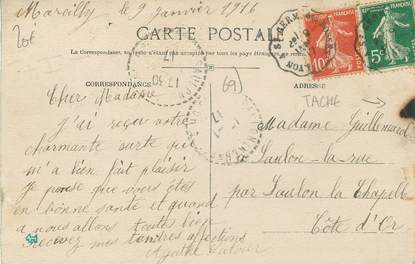 Marcilly le 9 janvier 1916
20€
CARTE POSTALE
La Correspondance au recto n'est pas acceptée par tous les pays étrangers
CORRESPONDANCE
69
ADRESSE
TACHE
Cher Madame
j'ai reçu votre
charmante carte qui
m'a bien fait plaisir
je pense que vous êtes
en bonne santé et quand
a nous allons toutes bien
Recevez mes tendres affections
Madame Guillemard
a Saulon-la-rue
par Saulon la Chapelle
Côte d'Or
10
5c